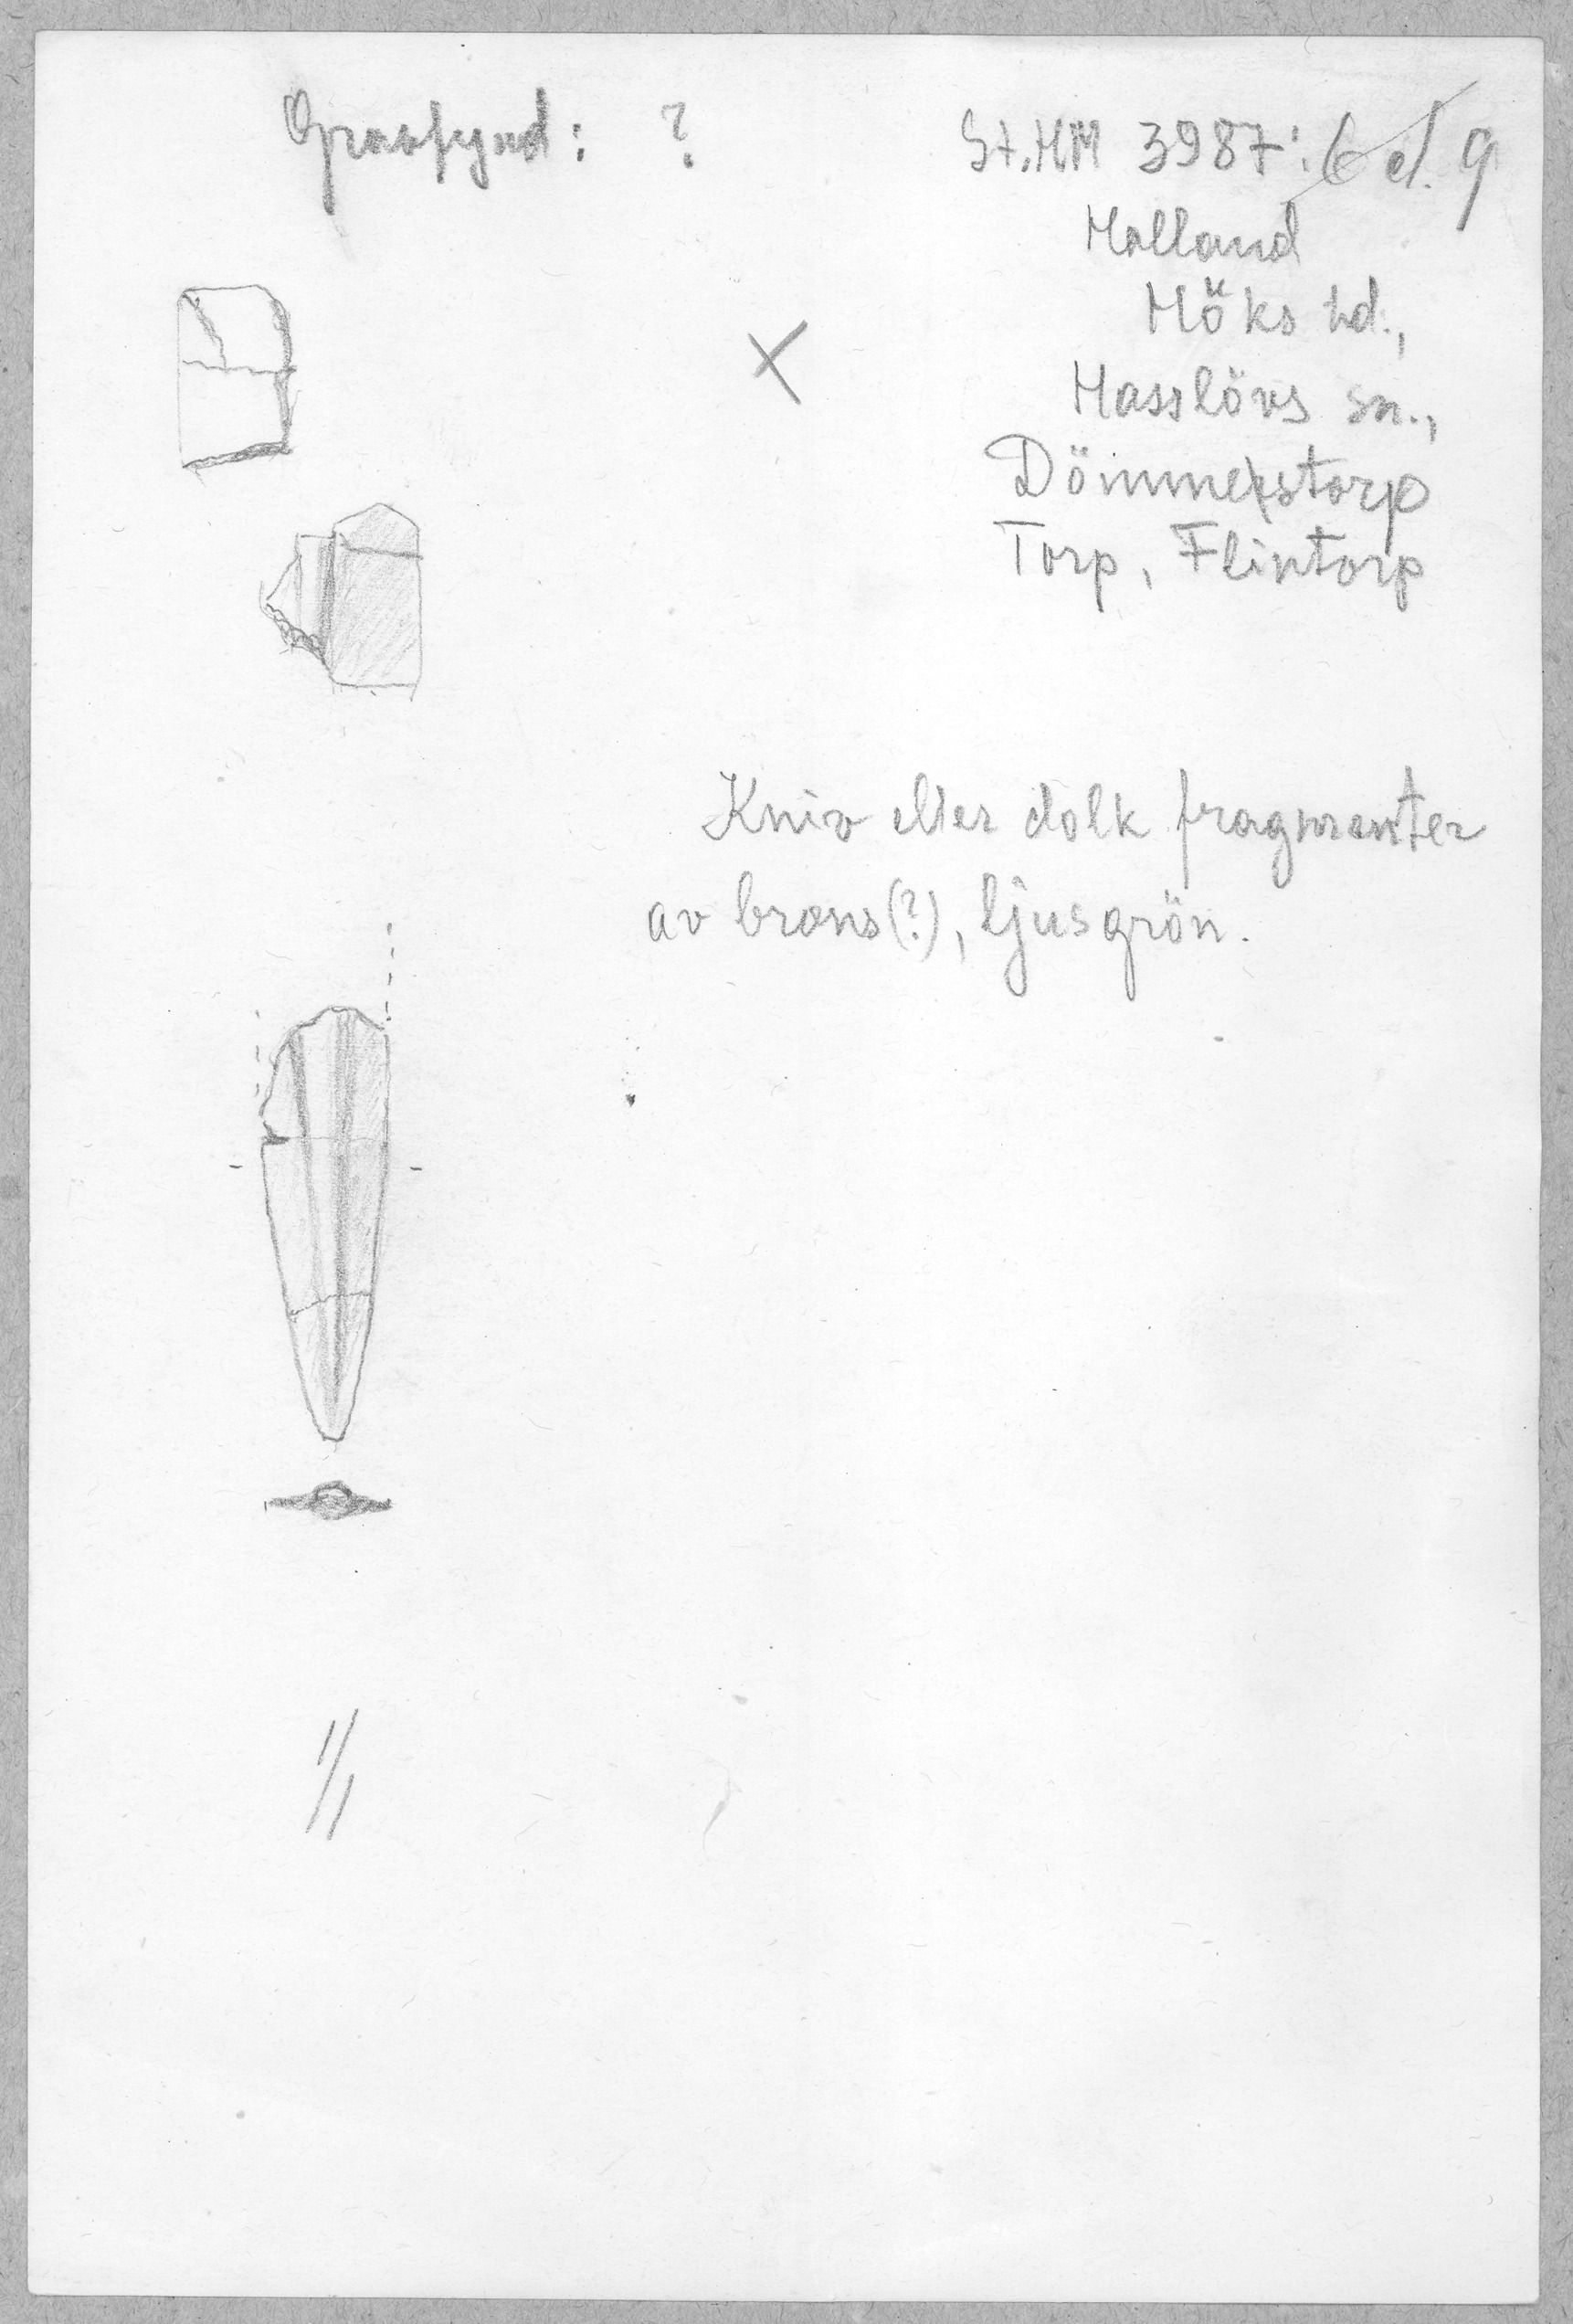 Gravfynd: ?
St.HM 3987: 6 el. 9
Halland
Höks hd.,
Hasslövs sn.,
Dömmestorp
Torp, Flintorp
Kniv eller dolk fragmenter
av brons(?), ljusgrön.
1/1